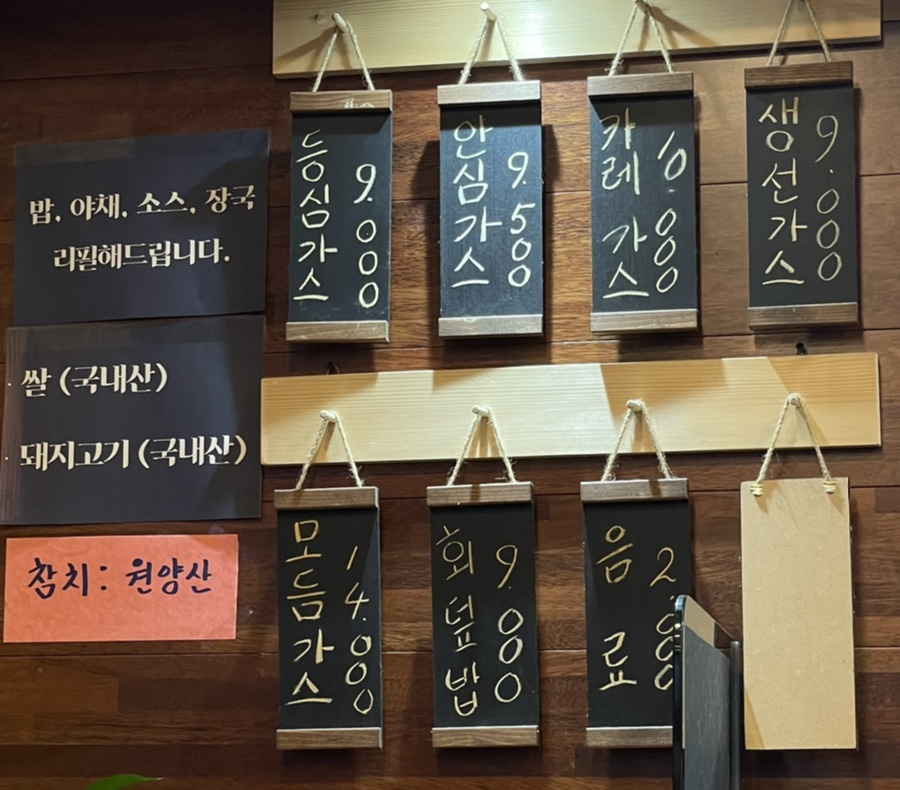 밥, 야채, 소스, 장국
리필해드립니다.
쌀 (국내산)
돼지고기 (국내산)
참치: 원양산
등심가스 9.000
안심가스 9.500
카레가스 10.000
생선가스 9.000
모듬가스 14.000
회덮밥 9.000
음료 2.000